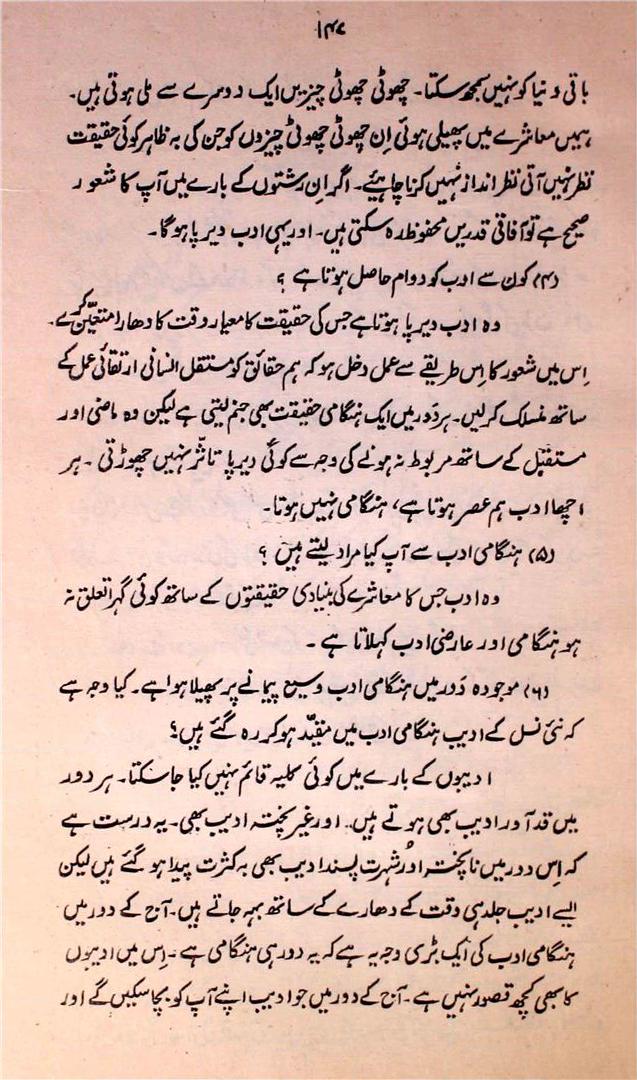 ۱۴۷
باقی دنیا کو نہیں سمجھ سکتا۔ چھوٹی چھوٹی چیزیں ایک دوسرے سے ملی ہوتی ہیں۔
ہمیں معاشرے میں پھیلی ہوئی اِن چھوٹی چھوٹی چیزوں کو جن کی بہ ظاہر کوئی حقیقت
نظر نہیں آتی نظر انداز نہیں کرنا چاہئیے۔ اگر اِن رشتوں کے بارے میں آپ کا شعور
صحیح ہے تو آفاقی قدریں محفوظ رہ سکتی ہیں۔ اور یہی ادب دیرپا ہوگا۔
(۴) کون سے ادب کو دوام حاصل ہوتا ہے ؟
وہ ادب دیرپا ہوتا ہے جس کی حقیقت کا معیار وقت کا دھارا متعیّن کرے۔
اِس میں شعور کا اِس طریقے سے عمل دخل ہو کہ ہم حقائق کو مستقل انسانی ارتقائی عمل کے
ساتھ منسلک کرلیں۔ ہر دَور میں ایک ہنگامی حقیقت بھی جنم لیتی ہے لیکن وہ ماضی اور
مستقبل کے ساتھ مربوط نہ ہونے کی وجہ سے کوئی دیرپا تاثّر نہیں چھوڑتی ۔ ہر
اچھا ادب ہم عصر ہوتا ہے، ہنگامی نہیں ہوتا۔
(۵) ہنگامی ادب سے آپ کیا مراد لیتے ہیں ؟
وہ ادب جس کا معاشرے کی بنیادی حقیقتوں کے ساتھ کوئی گہرا تعلق نہ
ہو ہنگامی اور عارضی ادب کہلاتا ہے ۔
(۶) موجودہ دَور میں ہنگامی ادب وسیع پیمانے پر پھیلا ہوا ہے۔ کیا وجہ ہے
کہ نئی نسل کے ادیب ہنگامی ادب میں مقیّد ہو کر رہ گئے ہیں؟
ادیبوں کے بارے میں کوئی کلیہ قائم نہیں کیا جاسکتا۔ ہر دور
میں قد آور ادیب بھی ہوتے ہیں۔ اور غیر پختہ ادیب بھی۔ یہ درست ہے
کہ اِس دور میں ناپختہ اور شہرت پسند ادیب بھی بہ کثرت پیدا ہو گئے ہیں لیکن
ایسے ادیب جلد ہی وقت کے دھارے کے ساتھ بہہ جاتے ہیں۔ آج کے دور میں
ہنگامی ادب کی ایک بڑی وجہ یہ ہے کہ یہ دور ہی ہنگامی ہے ۔ اِس میں ادیبوں
کا بھی کچھ قصور نہیں ہے ۔ آج کے دور میں جو ادیب اپنے آپ کو بچا سکیں گے اور